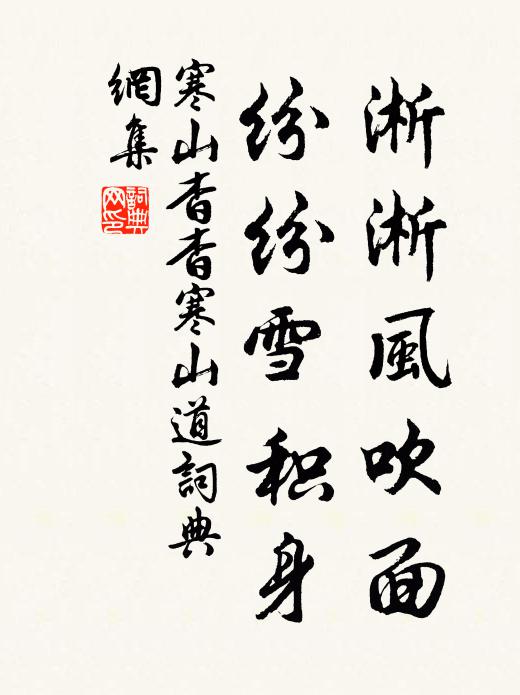 淅淅風吹面
紛紛雪积身
寒山杳杳寒山道詞典
網集
詞典
网印